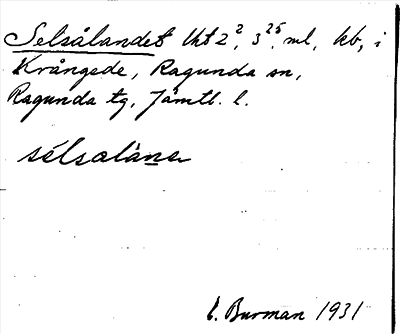 Selsålandet Uht 2², 3²⁵ ml, kb, i
Krångede, Ragunda sn,
Ragunda tg, Jämtl. l.
sélsalàna
E. Burman 1931